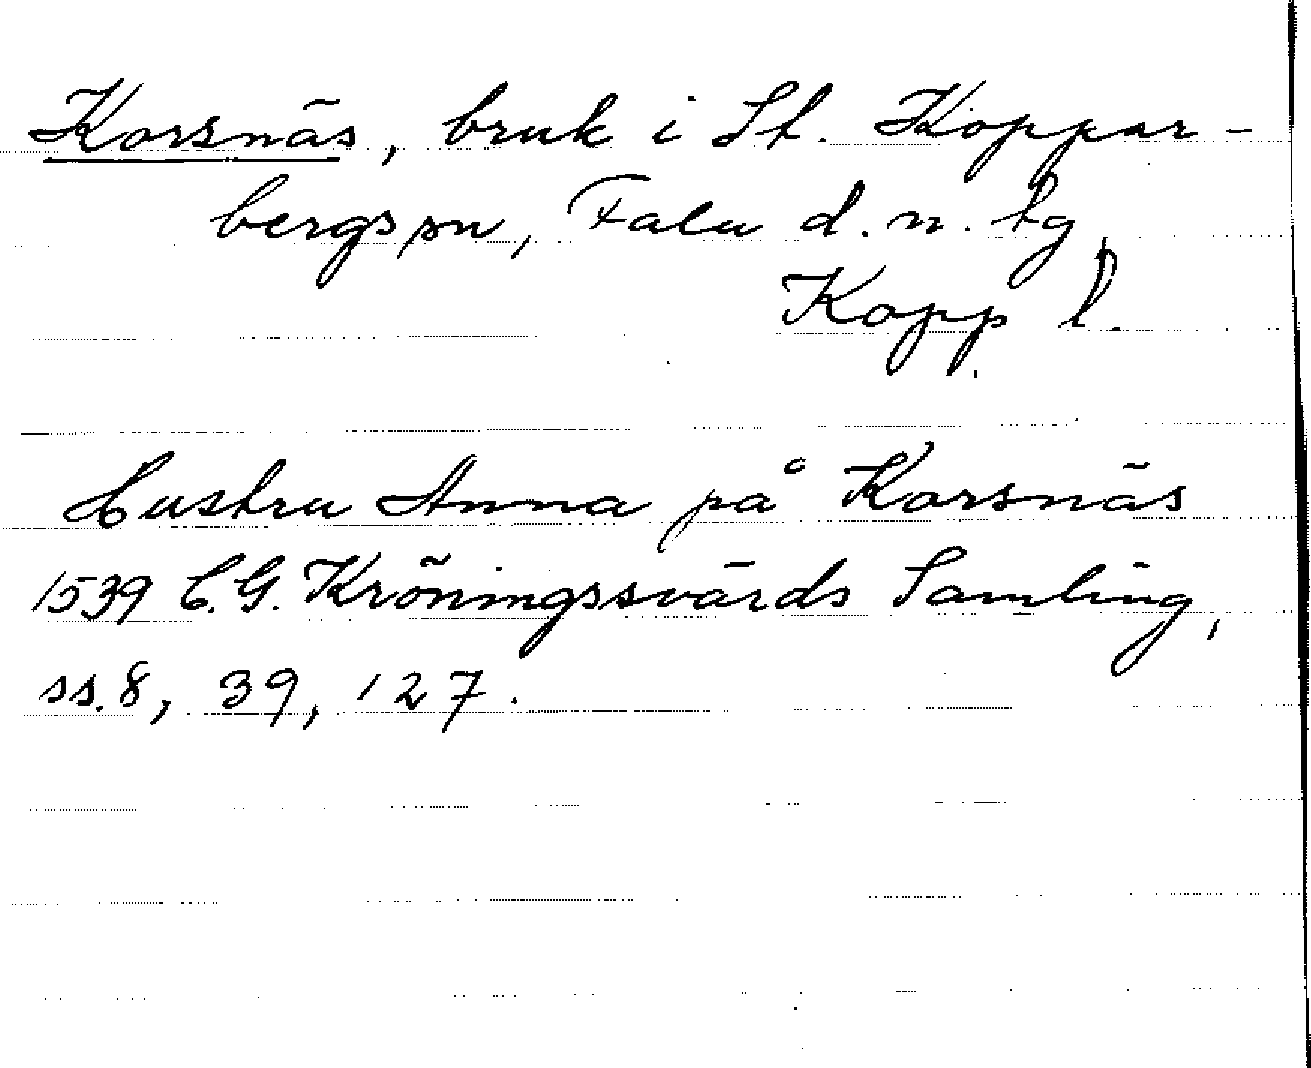 Korsnäs, bruk i St. Koppar-
bergs sn, Falu d. n. tg
Kopp l.
Hustru Anna på Korsnäs
1539 C.G. Kröningssvärds Samling,
ss. 8, 39, 127.